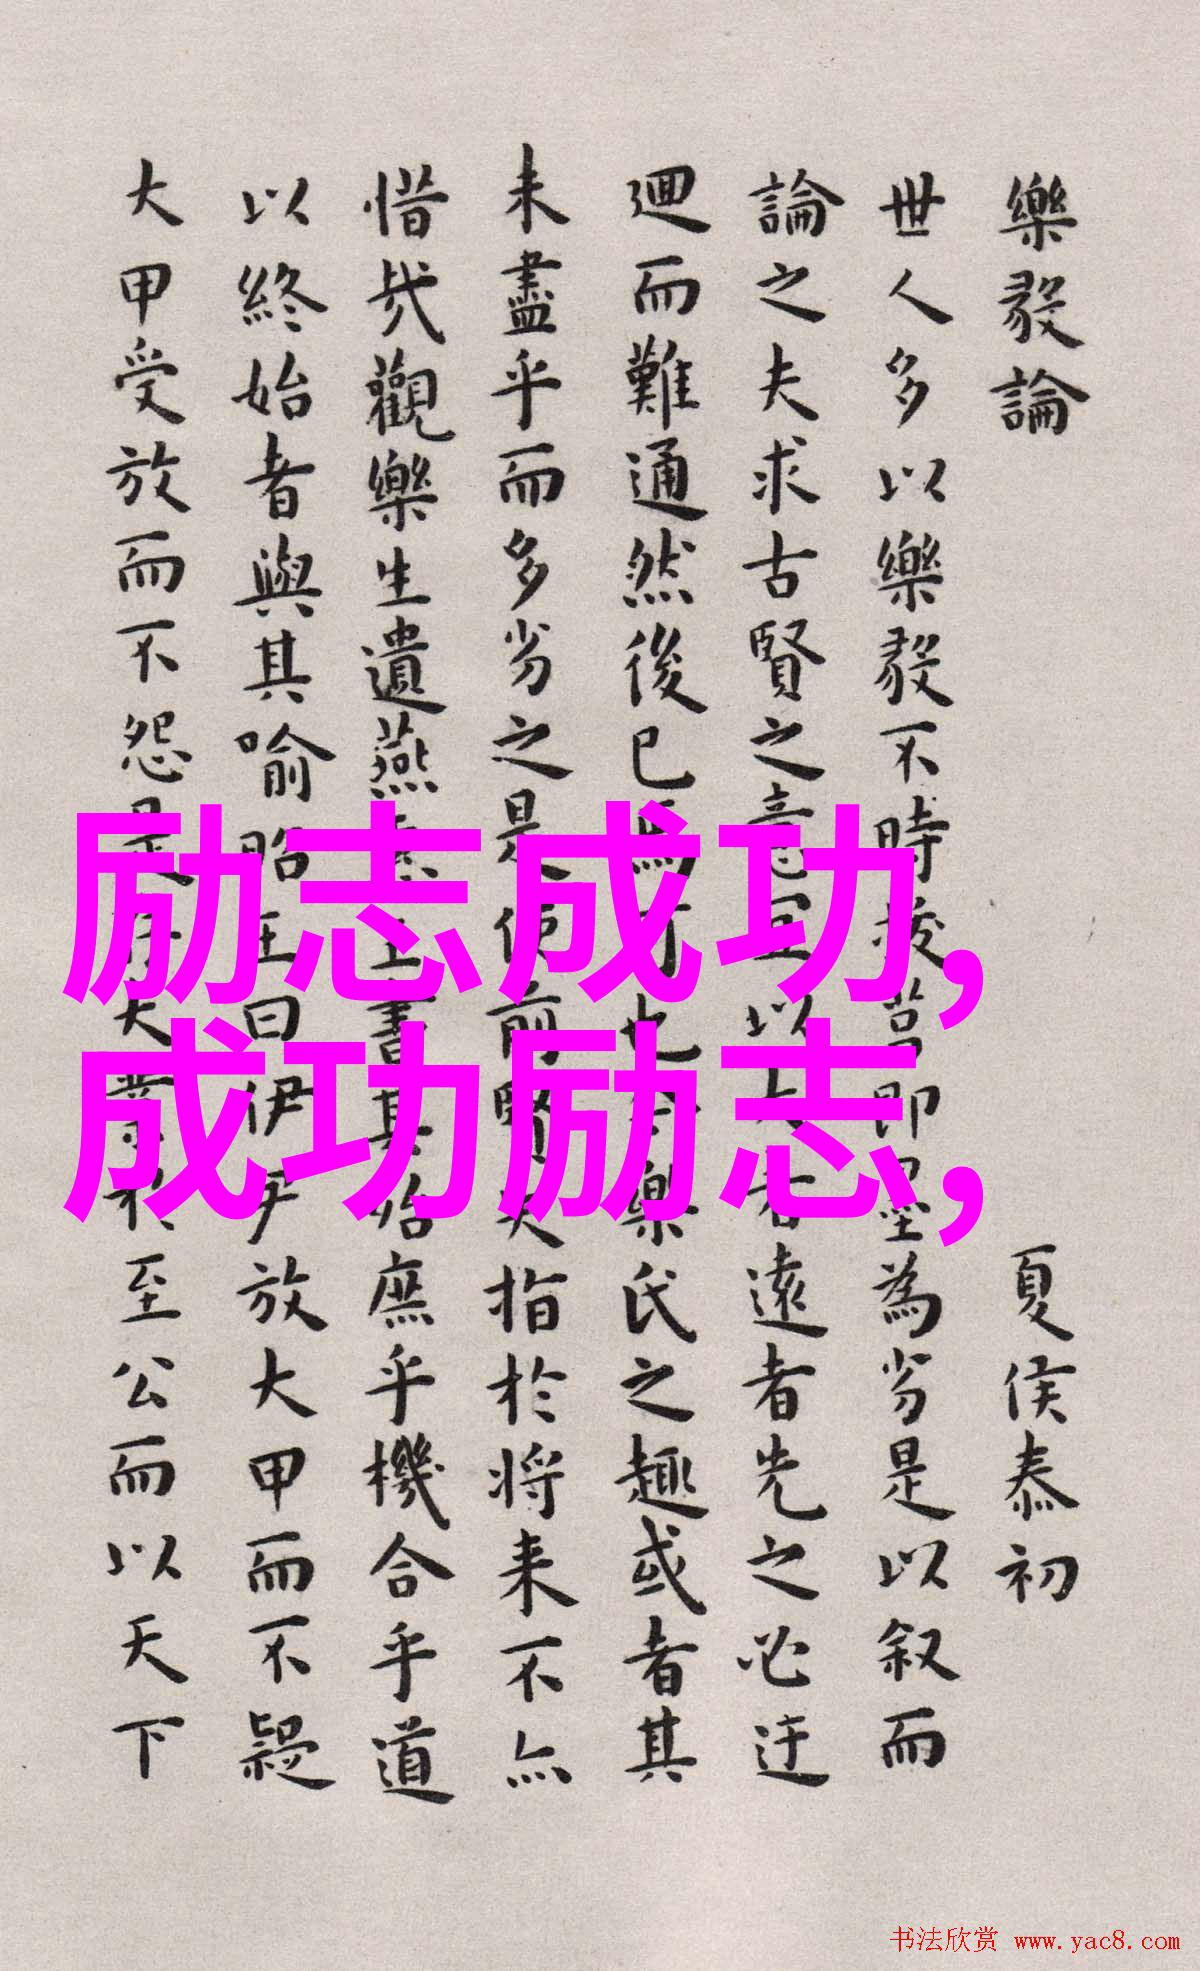 樂毅論
夏侯泰初
世人多以樂毅不時拔莒即墨為劣是以叙而
論之夫求古賢之意宜以大者遠者先之必迂
迴而難通然後已焉可也今樂氏之趣或者其
未盡乎而多劣之是使前賢失指於將来不亦
惜哉觀樂生遺燕惠王書其殆庶乎機合乎道
以終始者與其喻昭王曰伊尹放大甲而不疑
大甲受放而不怨是存大業於至公而以天下
励志成功,
成功励志,
书法欣赏 www.yac8.com